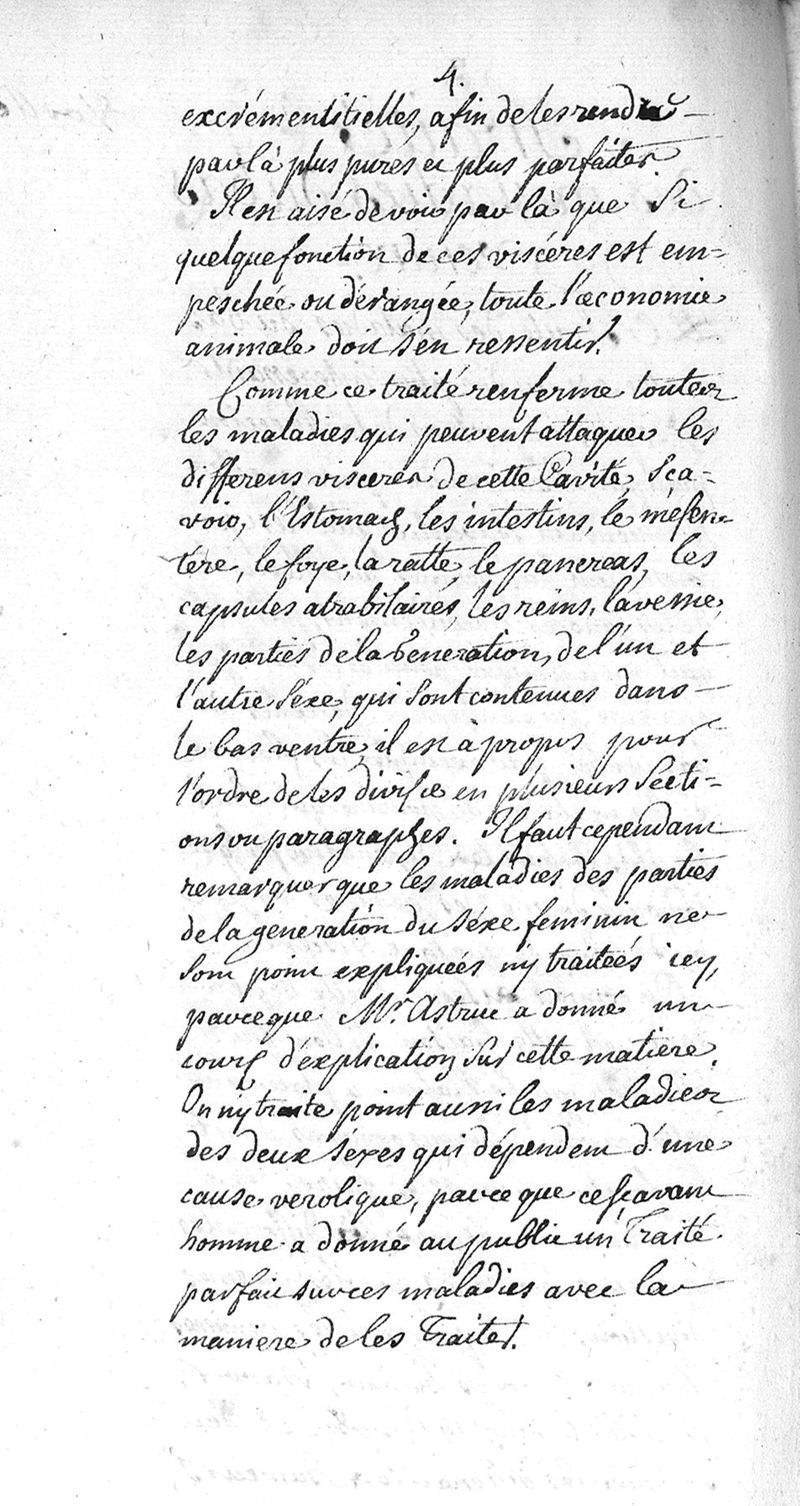 4.
excrémentitielles, afin de les rendre
par là plus pures et plus parfaites.
Il est aisé de voir par là que si
quelque fonction de ces viscéres est em=
peschée ou dérangée, toute l'œconomie
animale doit s'en ressentir.
Comme ce traité renferme toutes
les maladies qui peuvent attaquer les
differens visceres de cette Cavité, sca-
voir, l'Estomach, les intestins, le mésen-
tére, le foye, la ratte, le pancreas, les
capsules atrabilaires, les reins, la vessie,
les parties de la Generation, de l'un et
l'autre séxe, qui sont contenues dans
le bas ventre, il est à propos pour
l'ordre de les divise en plusieurs Secti-
ons ou paragraphes. Il faut cependant
remarquer que les maladies des parties
de la generation du séxe feminin ne
sont point expliquées ny traitées icy,
parceque Mr. Astruc a donné un
cours d'explication sur cette matiere.
On n'y traite point aussi les maladies
des deux séxes qui dépendent d'une
cause verolique, parce que ce sçavant
homme a donné au public un Traité
parfait sur ces maladies avec la
maniere de les Traiter.